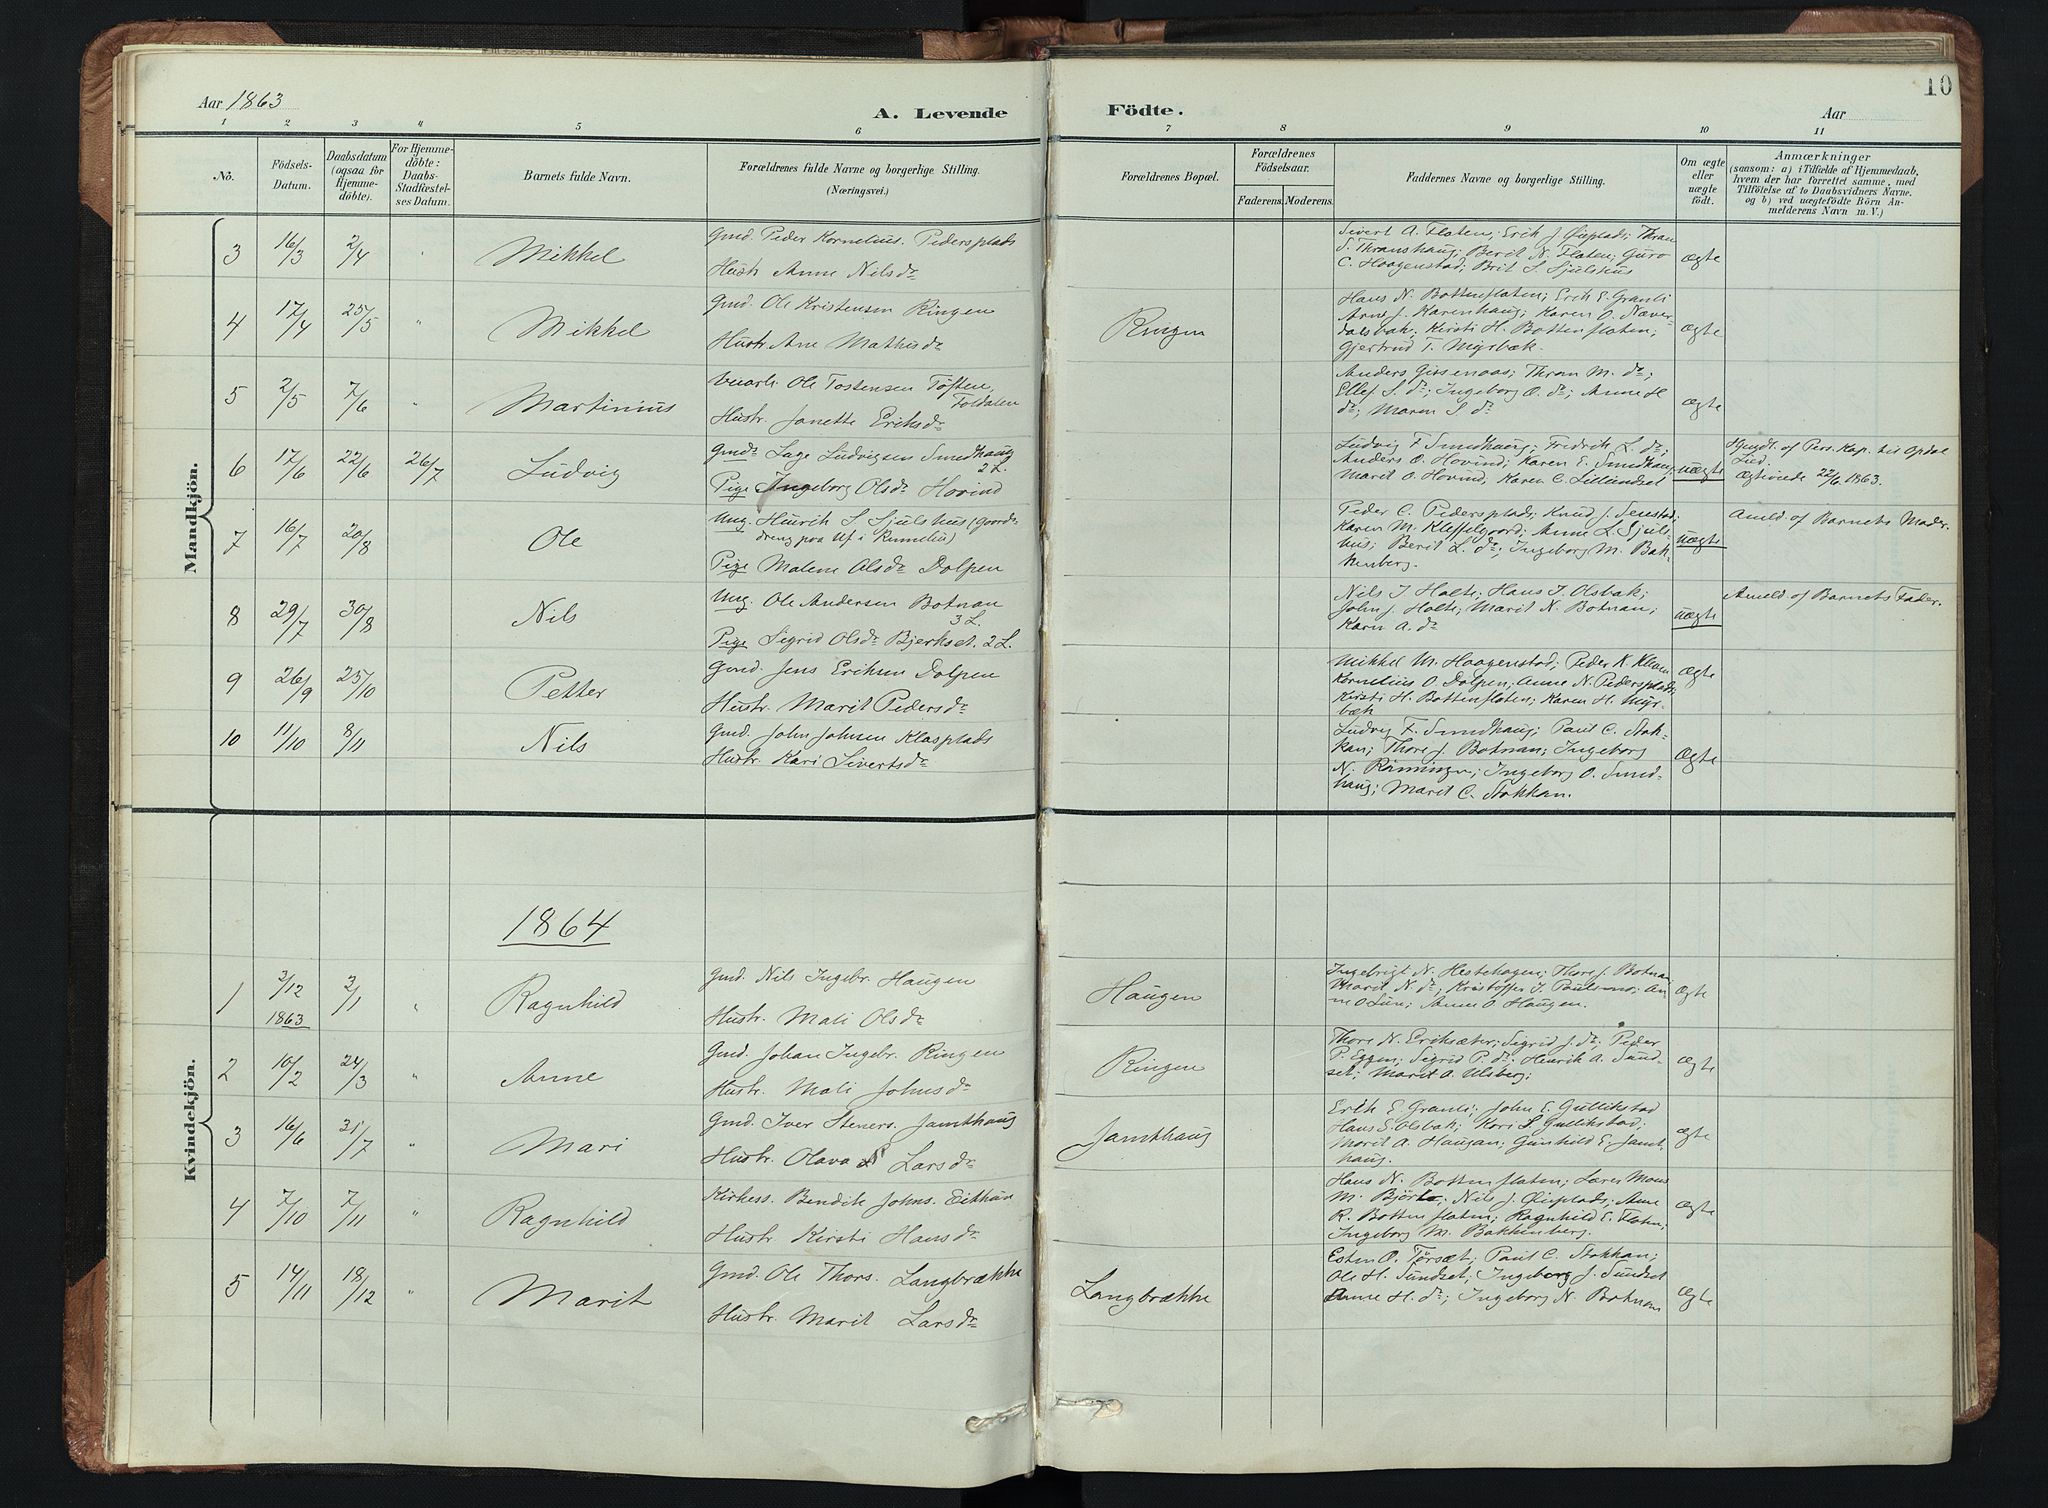 Aar 1863
A. Levende
Födte.
Aar
10
1 2 3 4 5 6 7 8 9 10 11
No.
Födsels-
Datum.
Daabsdatum
(ogsaa for
Hjemme-
döbte).
For Hjemme-
döbte:
Daabs-
Stadfæstel-
ses Datum.
Barnets fulde Navn.
Forældrenes fulde Navne og borgerlige Stilling.
(Næringsvei.)
Forældrenes Bopæl.
Forældrenes
Födselsaar.
Faderens. Moderens.
Faddernes Navne og borgerlige Stilling.
Om ægte
eller
uægte
födt.
Anmærkninger
(saasom: a) i Tilfælde af Hjemmedaab,
hvem der har forrettet samme, med
Tilföielse af to Daabsvidners Navne.
og b) ved uægtefödte Börn An-
melderens Navn m. V.)
Mandkjön.
3 16/3 2/4 " Mikkel
Gmd. Peder Kornelius. Pedersplads
Hustr Anne Nilsdr
Sivert A. Floten; Erik J. Øiuplads; Thran
S. Thranshaug; Berit N. Floten; Guro
C. Haagenstad; Brit S. Sjulshus
ægte
4 17/4 25/5 " Mikkel
Gmd. Ole Kristensen Ringen
Hustr. Ane Mathisdr
Ringen
Hans N. Bottenfloten; Erik E. Granli
Arne J. Karenhaug; Karen O. Næver-
dalsbak. Kirsti H. Bottenfloten;
Gjertrud T. Myrbæk.
ægte
5 2/5 7/6 " Martinius
Ole Tostensen Tøften,
Foldalen
Hustr. Janette Eriksdr
Anders Thran M. dr;
Ellef S. dr; Ingeborg O. dr; Anne H
dr; Maren S dr
ægte
6 17/6 22/6 26/7 Ludvig
Gmds Lage Ludvigsen Smedhaug
2 L.
Pige Ingeborg Olsdr Hovind
Ludvig F Smedhaug; Fredrik L. dr;
Anders O. Hovind; Karen E. Smedhaug
Marit O. Hovind; Karen C. Lillundset
uægte
Hjmdt. af Pers. Kap. til Opdal
Lied.
Ægteviede 22/6 1863.
7 16/7 20/8 Ole
Ung. Henrik S. Sjulshus (Gaards
dreng paa Uf i Rennebu)
Pige Malene Olsdr Dolpen
Peder C. Pedersplads; Knud J.
Karen M. Kleffelgaard; Anne L. Sjuls-
hus; Berit L. dr; Ingeborg M. Bak-
kenberg.
uægte
Anmeld. af Barnets Moder.
8 29/7 30/8 Nils
Ung. Ole Andersen Botnan
3 L.
Pige Sigrid Olsdr Bjerkset. 2 L.
Nils J Holte; Hans J. Olsbak;
John J. Holte; Marit N. Botnan;
Karn A. dr
uægte
Anmeld. af Barnets Fader.
9 26/9 25/10 Petter
Gmd. Jens Eriksen Dolpen
Hustr. Marit Pedersdr
Mikkel M. Haagenstad; Peder K
Kornelius O Dolpen, Anne N. Pedersplads
Kirsti H. Bottenfloten; Karen H. Myr-
bæk
ægte
10 11/10 8/11 Nils
Gmd. John Johnsen Klasplads
Hustr. Kari Sivertsdr
Ludvig F. Smedhaug; Paul C. Stok-
kan; Thore J. Botnan; Ingeborg
N. Rønningen; Ingeborg O. Smed-
haug; Marit C. Stokkan.
ægte
1864
Kvindekjön.
1 3/12 1863 2/1 " Ragnhild
Gmd. Nils Ingebr. Haugen
Hustr. Mali Olsdr
Haugen
Ingebrigt N. Hestehagen; Thore J. Botnan
Marit N. dr; Kristoffer J. Paulsmo; An-
ne O Lun; Anne O Haugen.
ægte
2 10/2 24/3 " Anne
Gmd. Johan Ingebr. Ringen
Hustr. Mali Johnsdr
Ringen
Thore N. Eriksæter; Sigrid J. dr; Peder
P. Eggen; Sigrid P. dr. Henrik A. Sund-
set; Marit O. Ulsberg;
ægte
3 16/6 31/7 " Mari
Gmd. Iver Steners. Jamthaug
Hustr. Olava Larsdr
Jamthaug
Erik E. Granli; John E. Gullikstad
Hans E. Olsbak; Kari S Gullikstad;
Marit A. Haugan; Gunhild E. Jamt-
haug.
ægte
4 7/10 7/11 " Ragnhild
Kirkess. Bendik Johns. Eithun
Hustr Kirsti Hansdr
Hans N. Bottenfloten; Lars Mons
M. Nils J. Øiuplads; Anne
R. Bottenfloten; Ragnhild E. Floten;
Ingeborg M. Bakkenberg.
ægte
5 14/11 18/12 " Marit
Gmd. Ole Thors. Langbrække
Hustr. Marit Larsdr
Langbrække
Esten O. Tørsæt; Paul C. Stokkan;
Ole H. Sundset; Ingeborg J. Sundset
Anne H. dr; Ingeborg N. Botnan
ægte